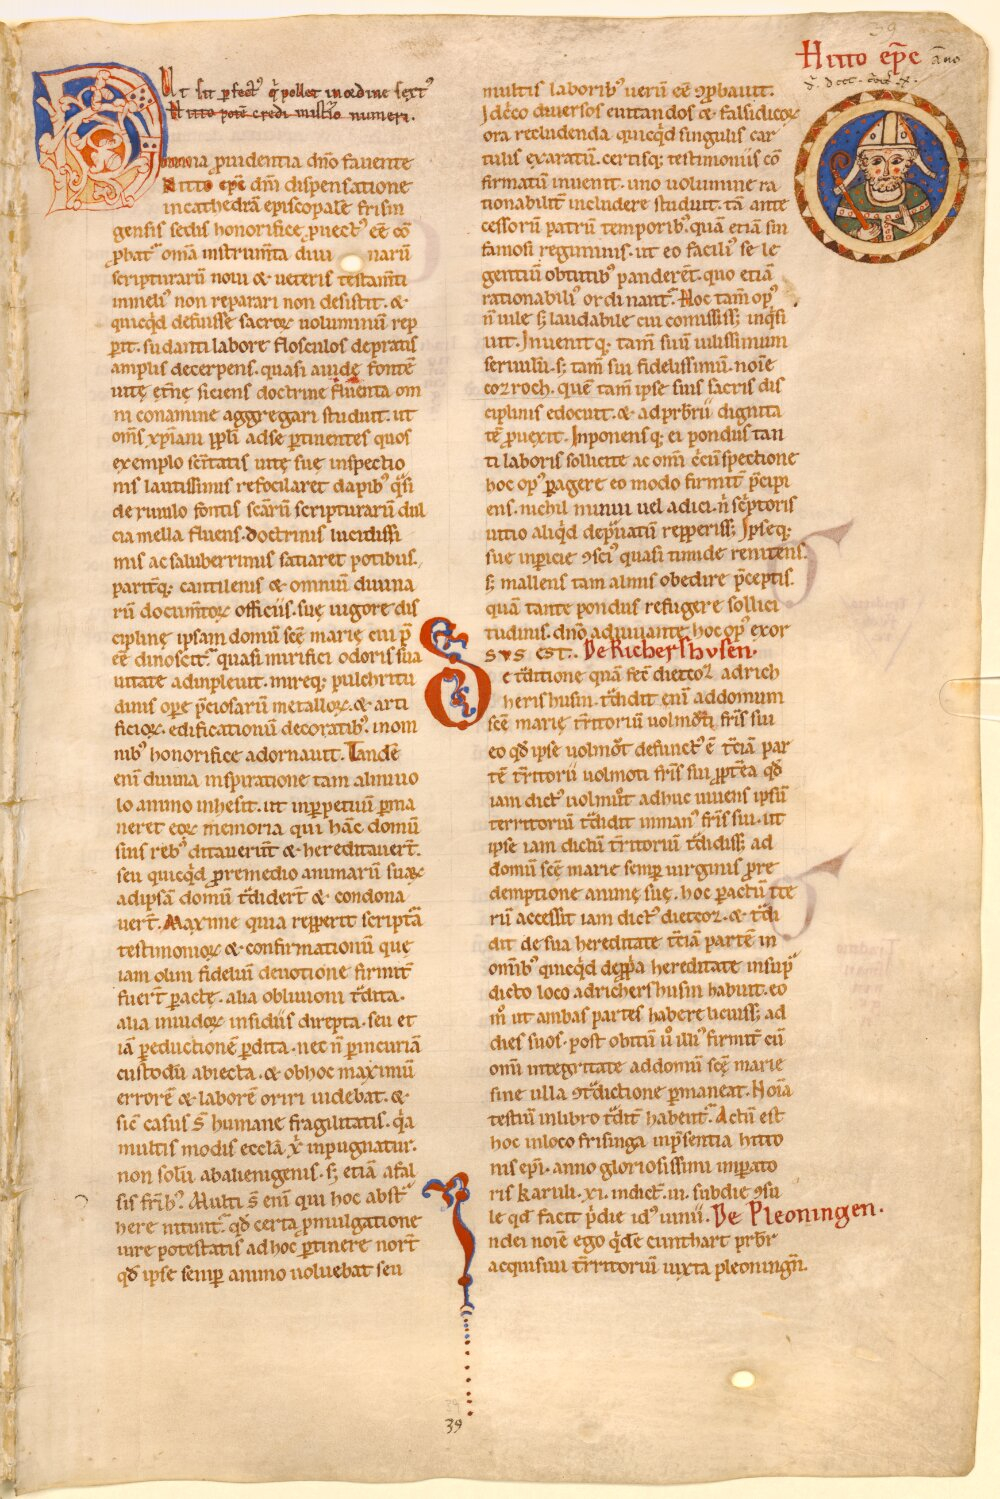 Hitto ep̄c āno
d̄. dccc.
Vt sit ꝑfectꝰ q̇ pollet in ordine sextꝰ
Hitto potē credi misterio numeri.
Omnia prudentia dn̄o fauente
Hitto ep̄c dn̄i dispensatione
in cathedrā episcopalē frisin
gensis sedis honorifice ꝓuectꝰ eē cō
ꝓbatᷣ omā instrum̄ta diui narū
scripturarū noui & ueteris testam̄ti
inmeliꝰ non reparari non desistit. &
quicq̇d defuisse sacroꝝ uoluminū rep
ꝑit. sudanti labore flosculos depratis
amplis decerpens. quasi auidę fontē
uitę et̄nę siciens doctrine fluenta om
ni conamine aggregari studuit. ut
om̄s xp̄iani ppl̄i adse ꝑtinentes quos
exemplo sc̄itatis uitę suę inspectio
nis lautissimis refocilaret dapibꝰ q̇si
de riuulo fontis sc̄arū scripturarū dul
cia mella fluens. doctrinis lucidissi
mis ac saluberrimis satiaret potibus.
paritq; cantilenis & omniū diuina
rū docum̄toꝝ officiis. suę uigore dis
cipline ipsam domū sc̄e marię cui p̄
eē dinoscitᷣ. quasi mirifici odoris sua
uitate adinpleuit. mireq; pulchritu
dinis opere p̄ciosarū metalloꝝ. & arti
ficioꝝ. edificationū decoratibꝰ. inom
nibꝰ honorifice adornauit. Tandē
enī diuina inspiratione tam almiuo
lo animo inhesit. ut inꝑpetuū ꝑma
neret eoꝝ memoria qui hāc domū
suis rebꝰ ditauerūt & hereditauert̄.
seu quicq̇d ꝓremedio animarū suaꝝ
adipsā domū t̄didert̄ & condona
uert̄. Maxime quia repperit scriptā
testimonioꝝ & confirmationū que
iam olim fideliū deuotione firmit̄
fuert̄ ꝑacte. alia obliuioni t̄dita.
alia inuidoꝝ insidiis direpta. seu et
iā ꝑeductionē ꝑdita. nec n̄ ꝑincuriā
custodū abiecta. & obhoc maximū
errorē & laborē oriri uidebat. &
sic̄ casus s̄ humane fragilitatis. q̇a
multis modis eccl̄a x̄ inpugnatur.
non solū abalienigenis. s; etiā afal
sis fr̄ibꝰ. Multi s̄ enī qui hoc abstᷣ
here nitunt̄. qd̄ certa ꝓmulgatione
iure potestatis adhoc ꝑtinere nort̄
qd̄ ipse semꝑ animo uoluebat seu
multis laboribꝰ uerū eē ꝯꝓbauit.
Idc̄o diuersos euitandos & falsidicoꝝ
ora recludenda quicq̇d singulis car
tulis exaratū. certisq; testimoniis cō
firmatū inuenit. uno uolumine ra
tionabilit̄ includere studuit. tā ante
cessorū patrū temporibꝰ. quā etiā sui
famosi regiminis. ut eo faciliꝰ se le
gentiū obtutibꝰ panderet̄. quo etiā
rationabiliꝰ ordinantᷣ. Hoc tam̄ opꝰ
n̄ uile s; laudabile cui comisiss; inq̇si
uit. Inuenitq. tam̄ suū uilissimum
seruulū. s; tam̄ sui fidelissimū. noīe
cozroch. quē tam̄ ipse suis sacris dis
ciplinis edocuit. & adpr̄brū dignita
tē ꝓuexit. Inponensq; ei pondus tan
ti laboris sollicite ac omī c̄cūspectione
hoc opꝰ ꝑagere eo modo firmit̄ p̄cipi
ens. nichil minui uel adici. n̄ sc̄ptoris
uitio aliq̇d deprauatū repperiss; Ipseq;
sue inpericie ꝯsciꝰ quasi timide renitens.
s; mallens tam almis obedire p̄ceptis.
quā tante pondus refugere sollici
tudinis. dn̄o adiuuante. hoc opꝰ exor
sus est. De Richershusen.
De t̄ditione quā fec̄ dietcoꝛ adrich
hershusin. t̄didit enī addomum
sc̄e marię t̄ritoriū uolmoti fr̄is sui
eo qd̄ ipse uolmōt defunctꝰ ē t̄ciā par
tē t̄ritorii uolmoti fr̄is sui ꝓpt̄ea qd̄
iam dictꝰ uolmūt adhuc uiuens ipsū
territoriū t̄didit inmanꝰ fr̄is sui. ut
ipse iam dictū t̄ritoriū t̄didiss; ad
domū sc̄e marie semꝑ uirginis ꝓre
demptione anime suę. hoc ꝑactū ite
rū accessit iam dictꝰ dietcoꝛ. & t̄di
dit de sua hereditate t̄ciā partē in
om̄ibꝰ quicq̇d deꝓp̄a hereditate insupᷣ
dicto loco adrichershusin habuit. eo
m̊ ut ambas partes habere licuiss; ad
dies suos. post obitū ů illiꝰ firmit̄ cū
omī integritate addomū sc̄ę marie
sine ulla ꝯt̄dictione ꝑmaneat. Noīa
testiū inlibro t̄dit̄ habentᷣ. Actū est
hoc inloco frisinga inp̄sentia hitto
nis ep̄i. anno gloriosissimi imꝑato
ris karuli. xi. indict̄. iii. subdie ꝯsu
le qd̄ facit p̄die idꝰ iunii. De Pleoningen.
In dei noīe ego q̇de cunthart pr̄br
acquisiui t̄rritoriū iuxta pleoningn̄.
39